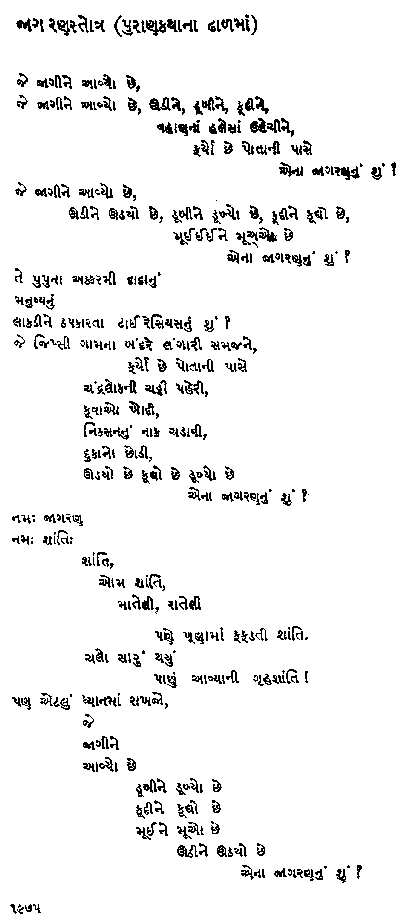 જાગરણસ્તોત્ર (પુરાણકથાના ઢાળમાં)
જે જાગીને આવ્યો છે,
જે જાગીને આવ્યો છે, ઊઠીને, ડૂબીને, કૂદીને,
વહાણનાં હલેસાં ઉલેચીને,
ફર્યો છે પોતાની પાસે
એના જાગરણનું શું ?
જે જાગીને આવ્યો છે,
ઊઠીને ઊઠયો છે, ડૂબીને ડૂબ્યો છે, કૂદીને કૂદ્યો છે,
મૂઈઈઈને મૂઅ્ઓ છે
એના જાગરણનું શું ?
તે પુપુના અક્કરમી દાદાનું
મનુષ્યનું
લાકડીને ઠપકારતા ટાઈરેસિયસનું શું ?
જે જિપ્સી ગામના બંદરે લંગારી સમજને,
ફર્યો છે પોતાની પાસે
ચંદ્રલોકની ચડ્ડી પહેરી,
કૂવાઓ ઓઢી,
નિક્સનનું નાક ચડાવી,
દુકાનો છોડી,
ઊઠયો છે કૂદ્યો છે ડૂબ્યો છે
એના જાગરણનું શું ?
નમઃ જાગરણ
નમઃ શાંતિઃ
શાંતિ,
ઓમ શાંતિ,
માતેલી, રાતેલી
પણે ખૂણામાં ફફડતી શાંતિ.
ચલો સારું થયું
પાછું આવ્યાની ગૃહશાંતિ !
પણ એટલું ધ્યાનમાં રાખજો,
જે
જાગીને
આવ્યો છે
ડૂબીને ડૂબ્યો છે
કૂદીને કૂદ્યો છે
મૂઈને મૂઓ છે
ઊઠીને ઊઠયો છે
એના જાગરણનું શું ?
૧૯૭૫